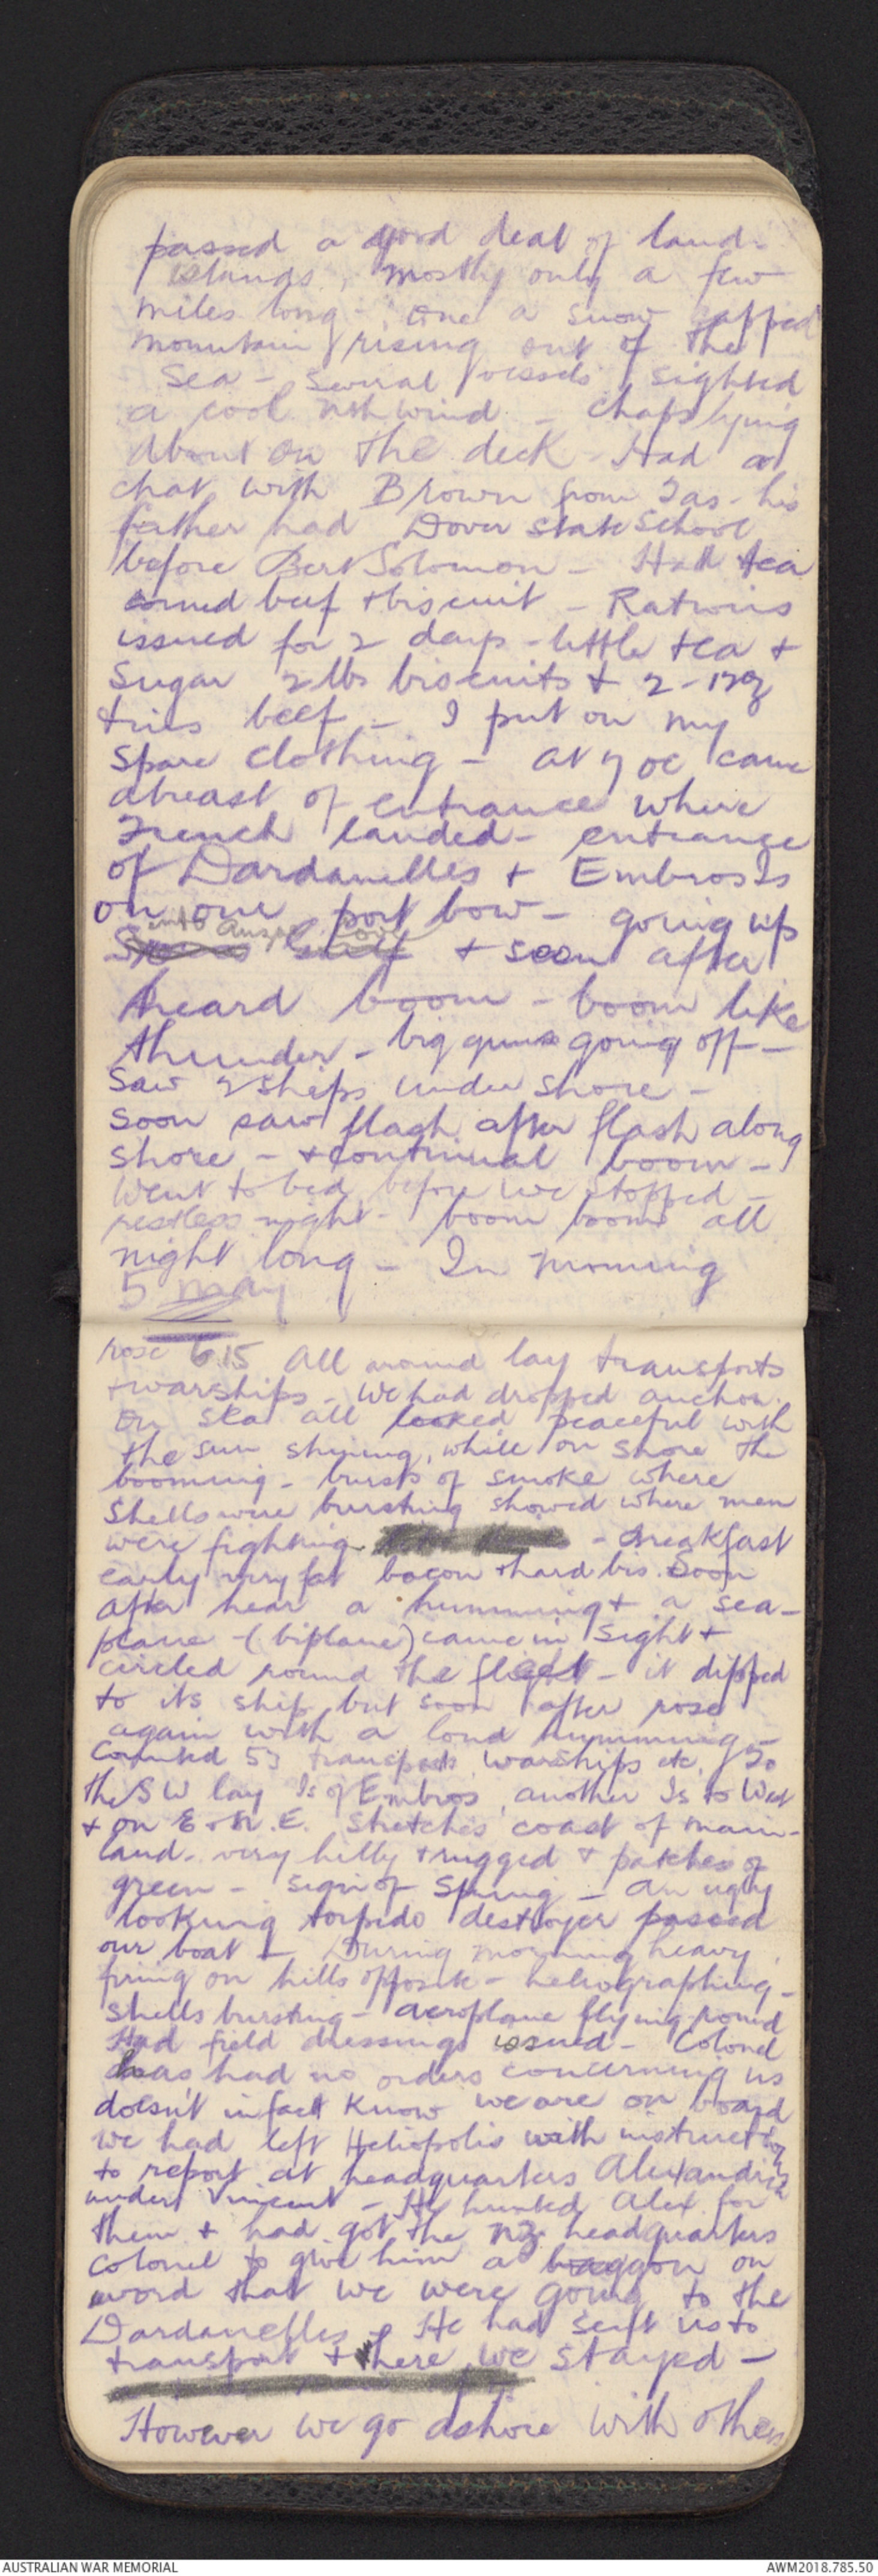 passed a good deal of land -
islands, mostly only a few
miles long - One a snow capped
mountain rising out of the
Sea - several vessels sighted
a cool nth wind - chaps lying
about on the deck - Had a
chat with Brown from Tas - his
father had Dover State School
before Bert Solomon - Had tea
corned beef + biscuit - Rations
issued for 2 days - little tea +
Sugar 2 lbs biscuits + 2 - 12oz
tins beef - I put on my
Spare Clothing - at 7 oc came
abreast of entrance where
French landed - entrance
of Dardanelles + Embros Is
on our port bow - going up
into Anzac Cove
+ soon after
heard boom - boom like
thunder - big guns going off -
Saw 2 ships under shore -
Soon saw flash after flash along
shore - + continual boom -
Went to bed before we stopped -
restless night - boom boom all
night long - In morning
5 may
rose 6.15 All around lay transports
+ warships - We had dropped anchor.
On sea all looked peaceful with
the sun shining, while on shore the
booming - bursts of smoke where
Shells were bursting showed where men
were fighting. - Breakfast
early very fat bacon + hard bis. Soon
after hear a humming + a sea-
plane - (biplane) came in sight +
circled round the fleet - it dipped
to its ship but soon after rose
again with a loud humming -
Counted 53 transports warships etc. To
the SW lay Is of Embros, another Is to West
+ on E + N.E. Stretches coast of main-
land - very hilly + rugged + patches of
green - sign of Spring - an ugly
looking torpedo destroyer passed
our boat - During morning heavy
firing on hills opposite - heliographing -
Shells bursting - aeroplane flying round
Had field dressings issued - Colonel
has had no orders concerning us
doesn't in fact know we are on board
We had left Heliopolis with instructions
to report at headquarters Alexandria
under Vincent - He hunted Alex for
them + had got the NZ headquarters
Colonel to give him a waggon on
word that we were going to the
Dardanelles - He had sent us to
transport + there we stayed -
However we go ashore with others
AUSTRALIAN WAR MEMORIAL
AWM2018.785.50